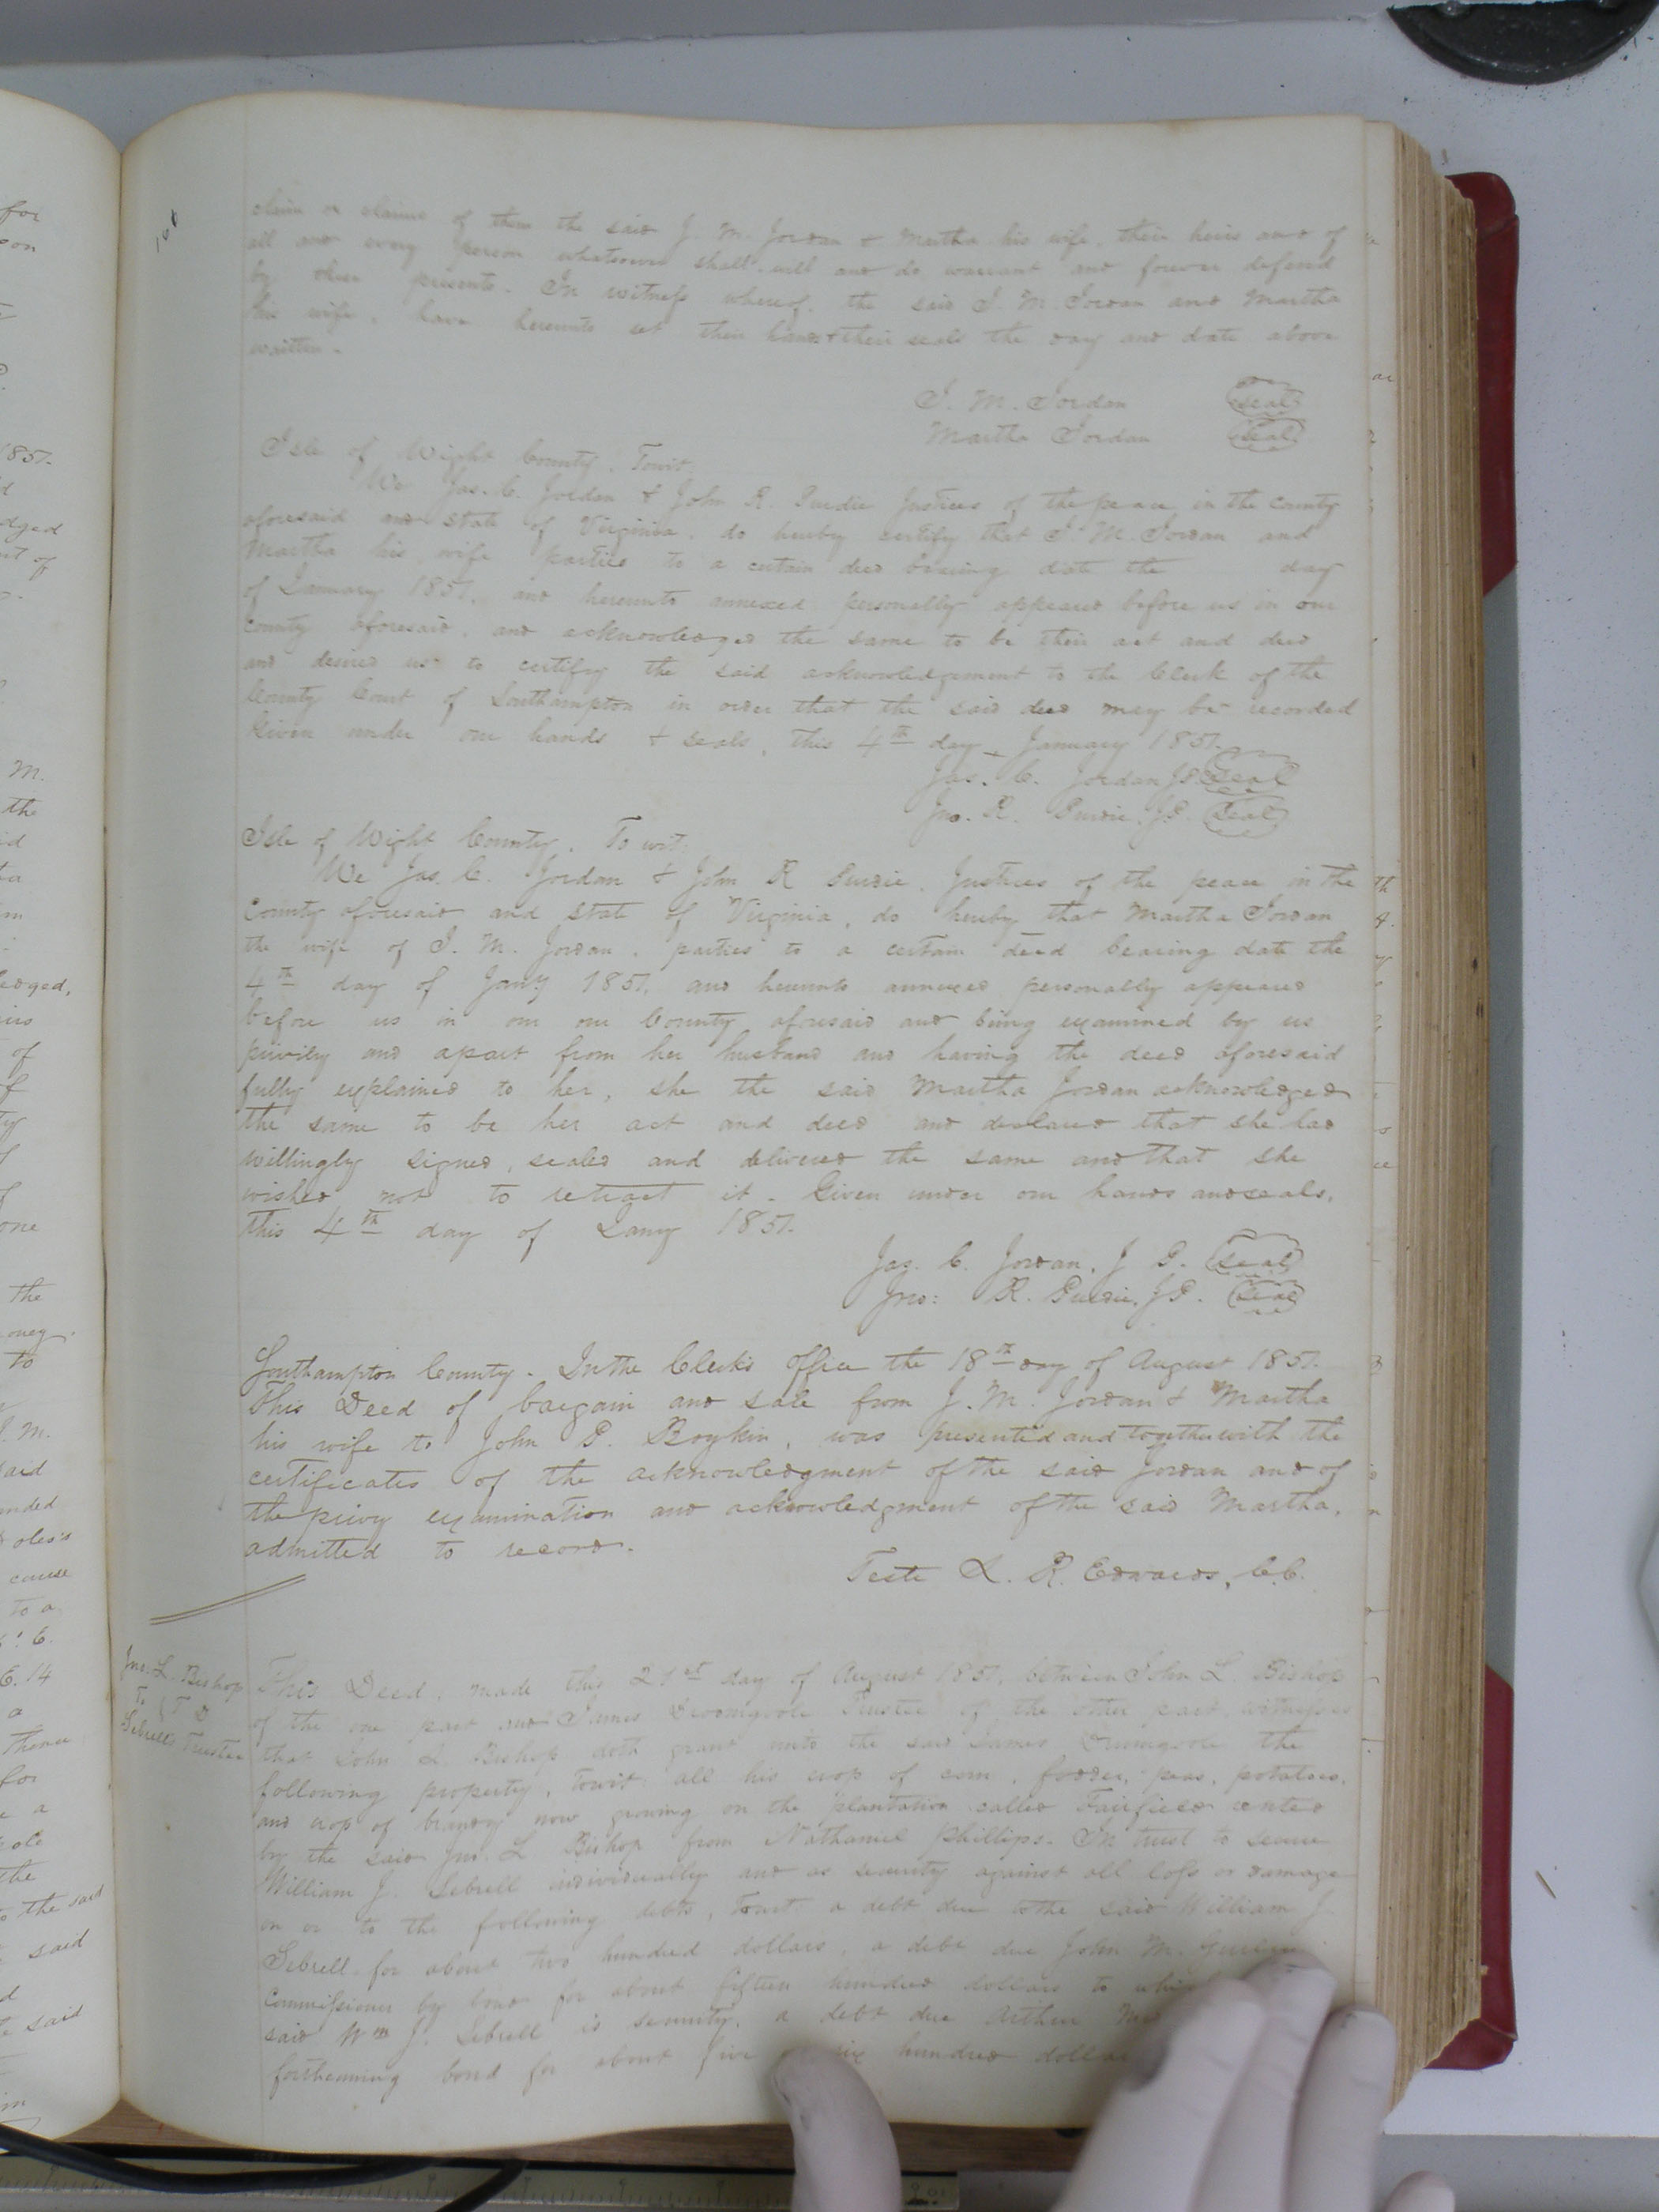 160
claim or claims of them the said J. M. Jordan & Martha his wife, their heirs and of
all and every person whatsoever shall will and do warrant and forever defend
by these presents. In witness whereof, the said J. M. Jordan and Martha
his wife, have hereunto set their hands & their seals the day and date above
written.
J. M. Jordan (Seal)
Martha Jordan (Seal)
Isle of Wight County, Towit:
We Jas. C. Jordan & John R. Purdie Justices of the peace in the county
aforesaid and state of Virginia, do hereby certify that J. M. Jordan and
Martha his wife parties to a certain deed bearing date the day
of January 1851, and hereunto annexed personally appeared before us in our
County aforesaid, and acknowledged the same to be their act and deed
and desired us to certify the said acknowledgement to the Clerk of the
County Court of Southampton in order that the said deed may be recorded
Given under our hands & seals, this 4th day, January 1851.
Jas. C. Jordan J.P. (Seal)
Jno. R. Purdie, J.P. (Seal)
Isle of Wight County, To wit:
We Jas. C. Jordan & John R Purdie, Justices of the peace in the
County aforesaid and state of Virginia, do hereby that Martha Jordan
the wife of J. M. Jordan, parties to a certain deed bearing date the
4th day of Jany 1851, and hereunto annexed personally appeared
before us in our our County aforesaid and being examined by us
privily and apart from her husband and having the deed aforesaid
fully explained to her, she the said Martha Jordan acknowledged
the same to be her act and deed and declared that she had
willingly signed, sealed and delivered the same and that she
wished not to retract it. Given under our hands and seals,
this 4th day of Jany 1851.
Jas. C. Jordan, J P. (Seal)
Jno: R. Purdie, J.P. (Seal)
Southampton County. In the Clerk's Office the 18th day of August 1851.
This Deed of bargain and sale from J. M. Jordan & Martha
his wife to John P. Boykin, was presented and together with the
certificates of the acknowledgment of the said Jordan and of
the privy examination and acknowledgment of the said Martha,
admitted to record.
Teste L. R. Edwards, C.C.
Jno. L. Bishop
to } T D
Sebrell's Trustee
This Deed, made this 21st day of August 1851, between John L. Bishop
of the one part and James Dromgoole Trustee of the other part, witnesses
that John L Bishop doth grant unto the said James Dromgoole the
following property, towit: all his crop of corn, fodder, peas, potatoes,
and crop of brandy now growing on the plantation called Fairfield rented
by the said Jno. L Bishop from Nathaniel Phillips. In trust to secure
William J. Sebrell individually and as security against all loss or damage
on or to the following debts, towit: a debt due to the said William J.
Sebrell for about two hundred dollars, a debt due John M.
commissioner by bond for about fifteen hundred dollars to
said Wm J. Sebrell is security, a debt due Arthur
forthcoming bond for about five six hundred